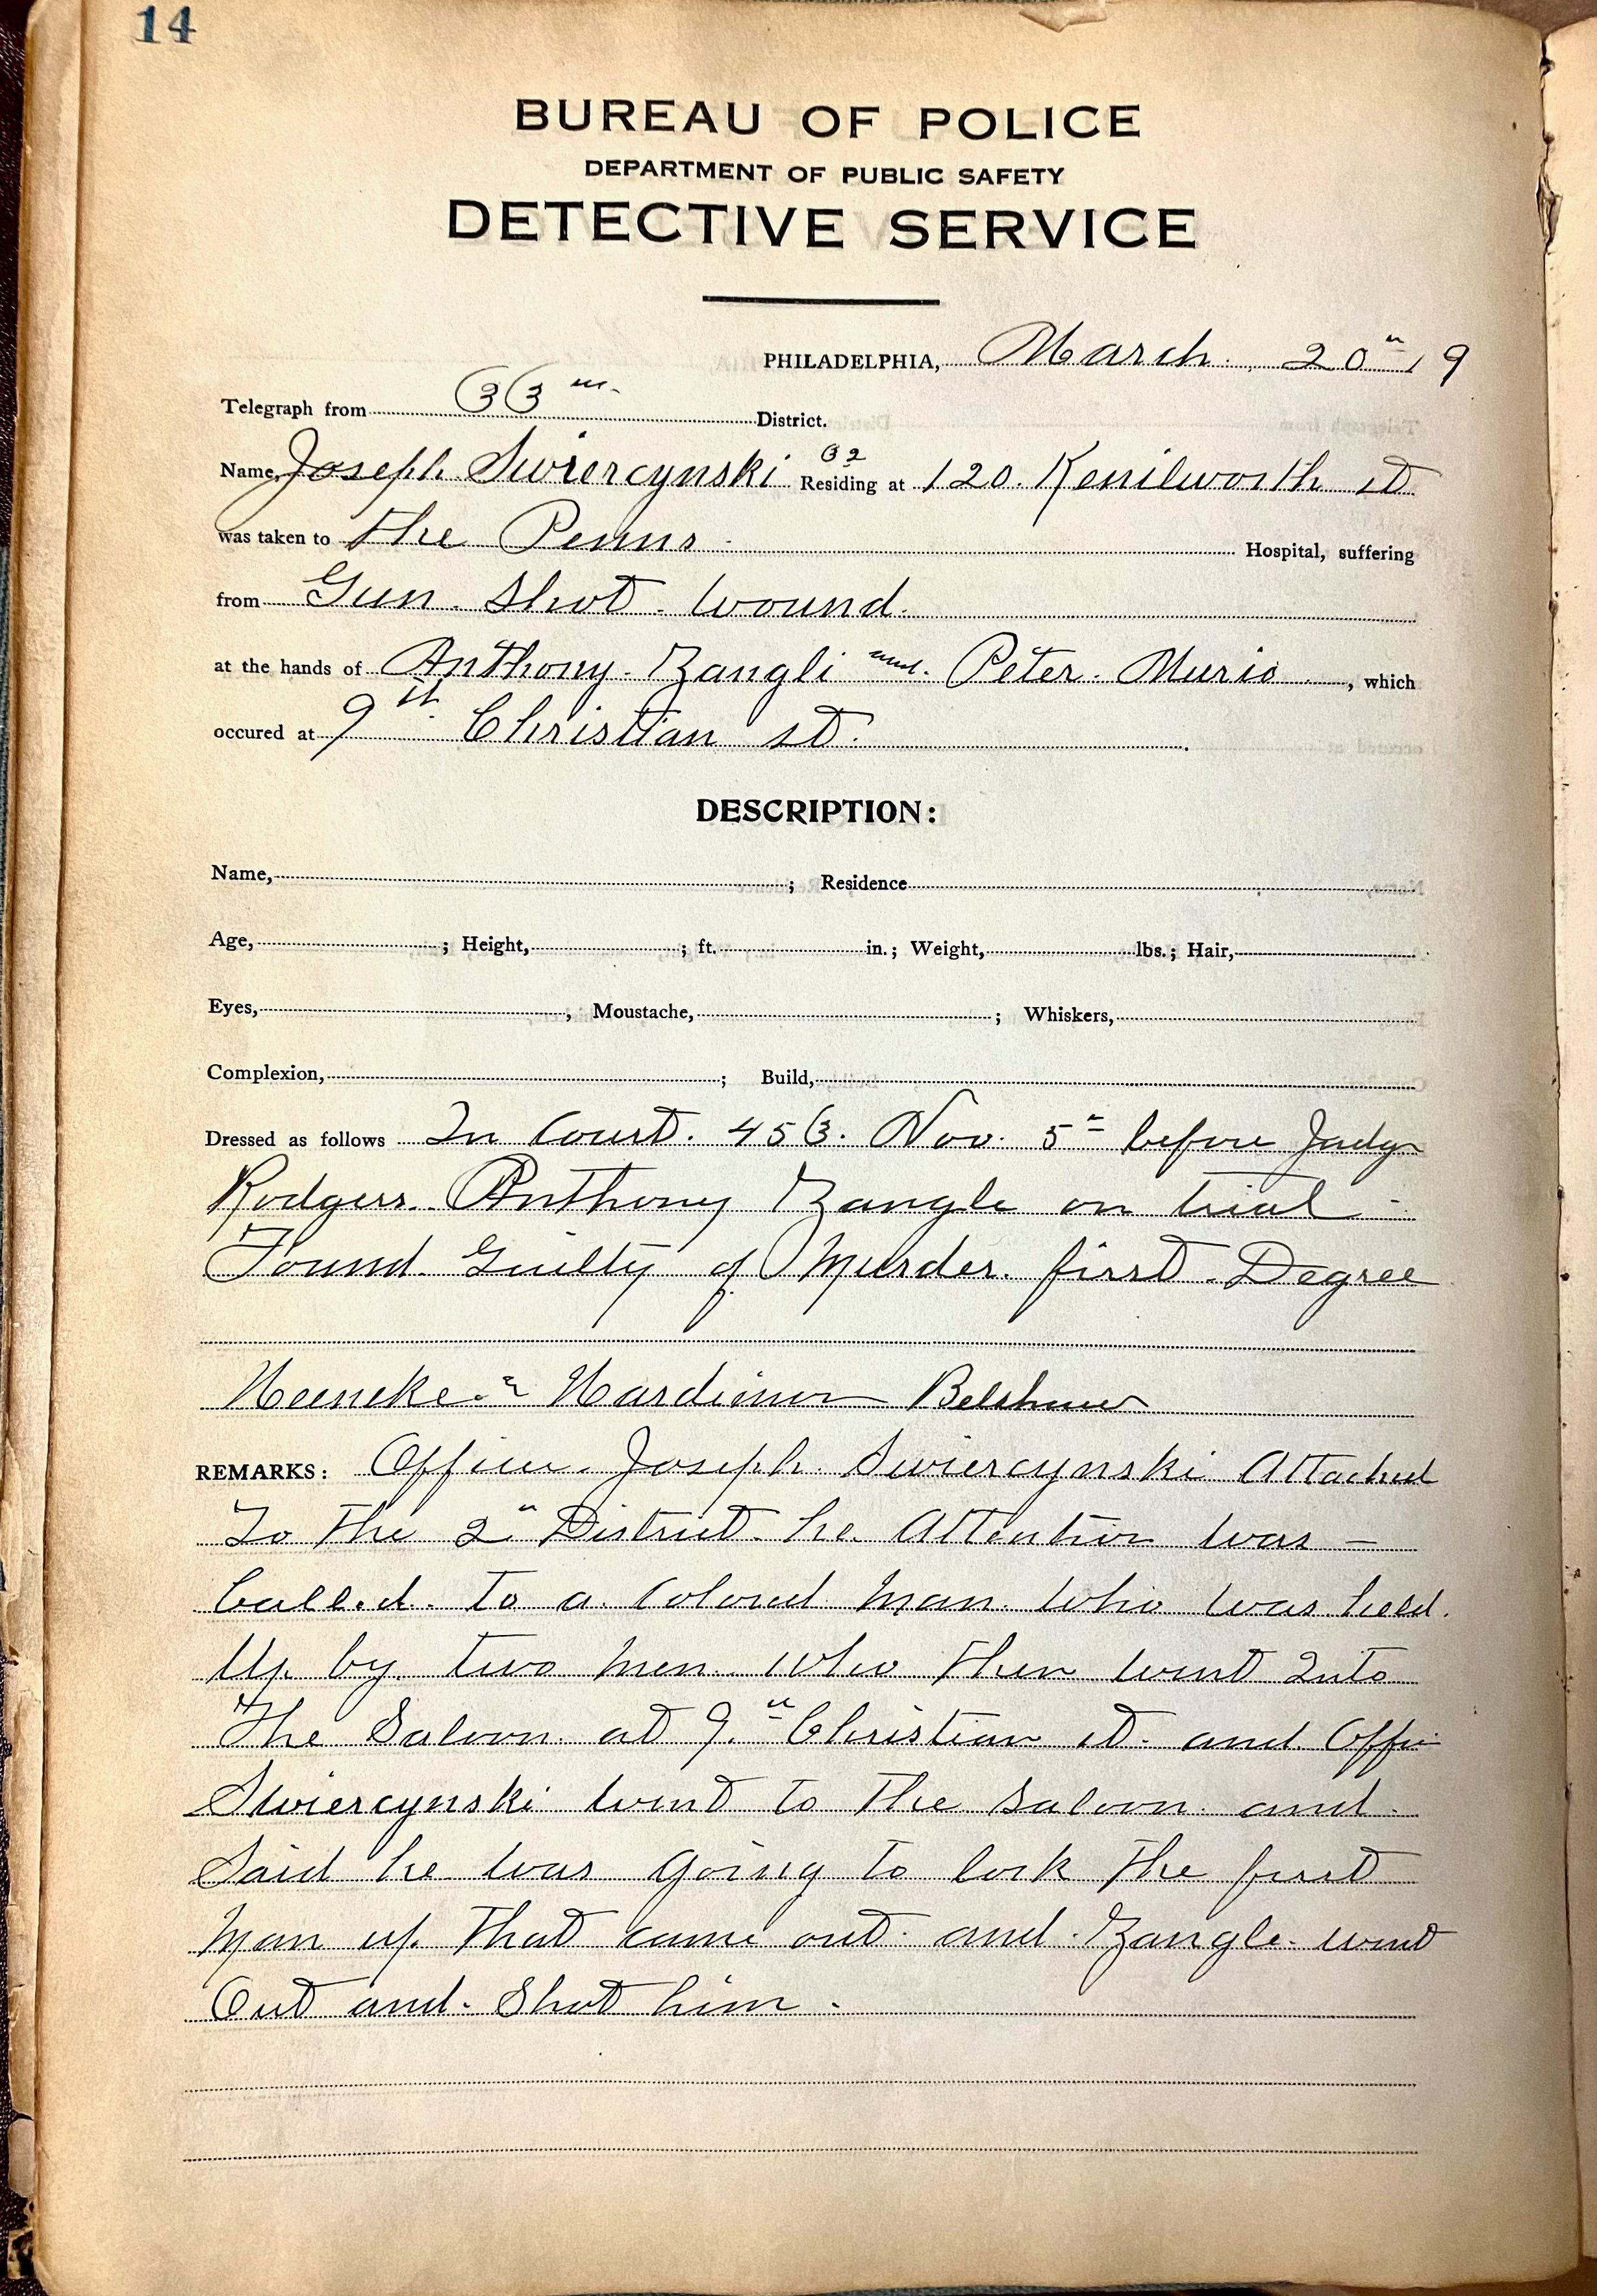 14
BUREAU OF POLICE
DEPARTMENT OF PUBLIC SAFETY
DETECTIVE SERVICE
PHILADELPHIA, March 20" 19
Telegraph from 33 District.
Name, Joseph Swiercynski 32 Residing at 120. Kenilworth st
was taken to the Penna Hospital, suffering
from Gun Shot wound.
at the hands of Anthony Zangli and Peter Murio, which
occured at 9th Christian st.
DESCRIPTION:
Name, ; Residence
Age, ; Height, ; ft. in.; Weight, lbs.; Hair,
Eyes, , Moustache, ; Whiskers,
Complexion, ; Build,
Dressed as follows In Court. 453. Nov. 5" before Judge
Rodgers. Anthony Zangle on trial -
Found Guilty of Murder first Degree
Belshaw
REMARKS: Officer Joseph Swiercynski Attached
To the 2" District he Attention was -
Called to a Colored Man who was held
Up by two men who then went Into
The Saloon at 9" Christian st. and
Swiercynski went to the Saloon and
Said he was going to lock the first
Man up that came out and Zangle went
Out and Shot him.